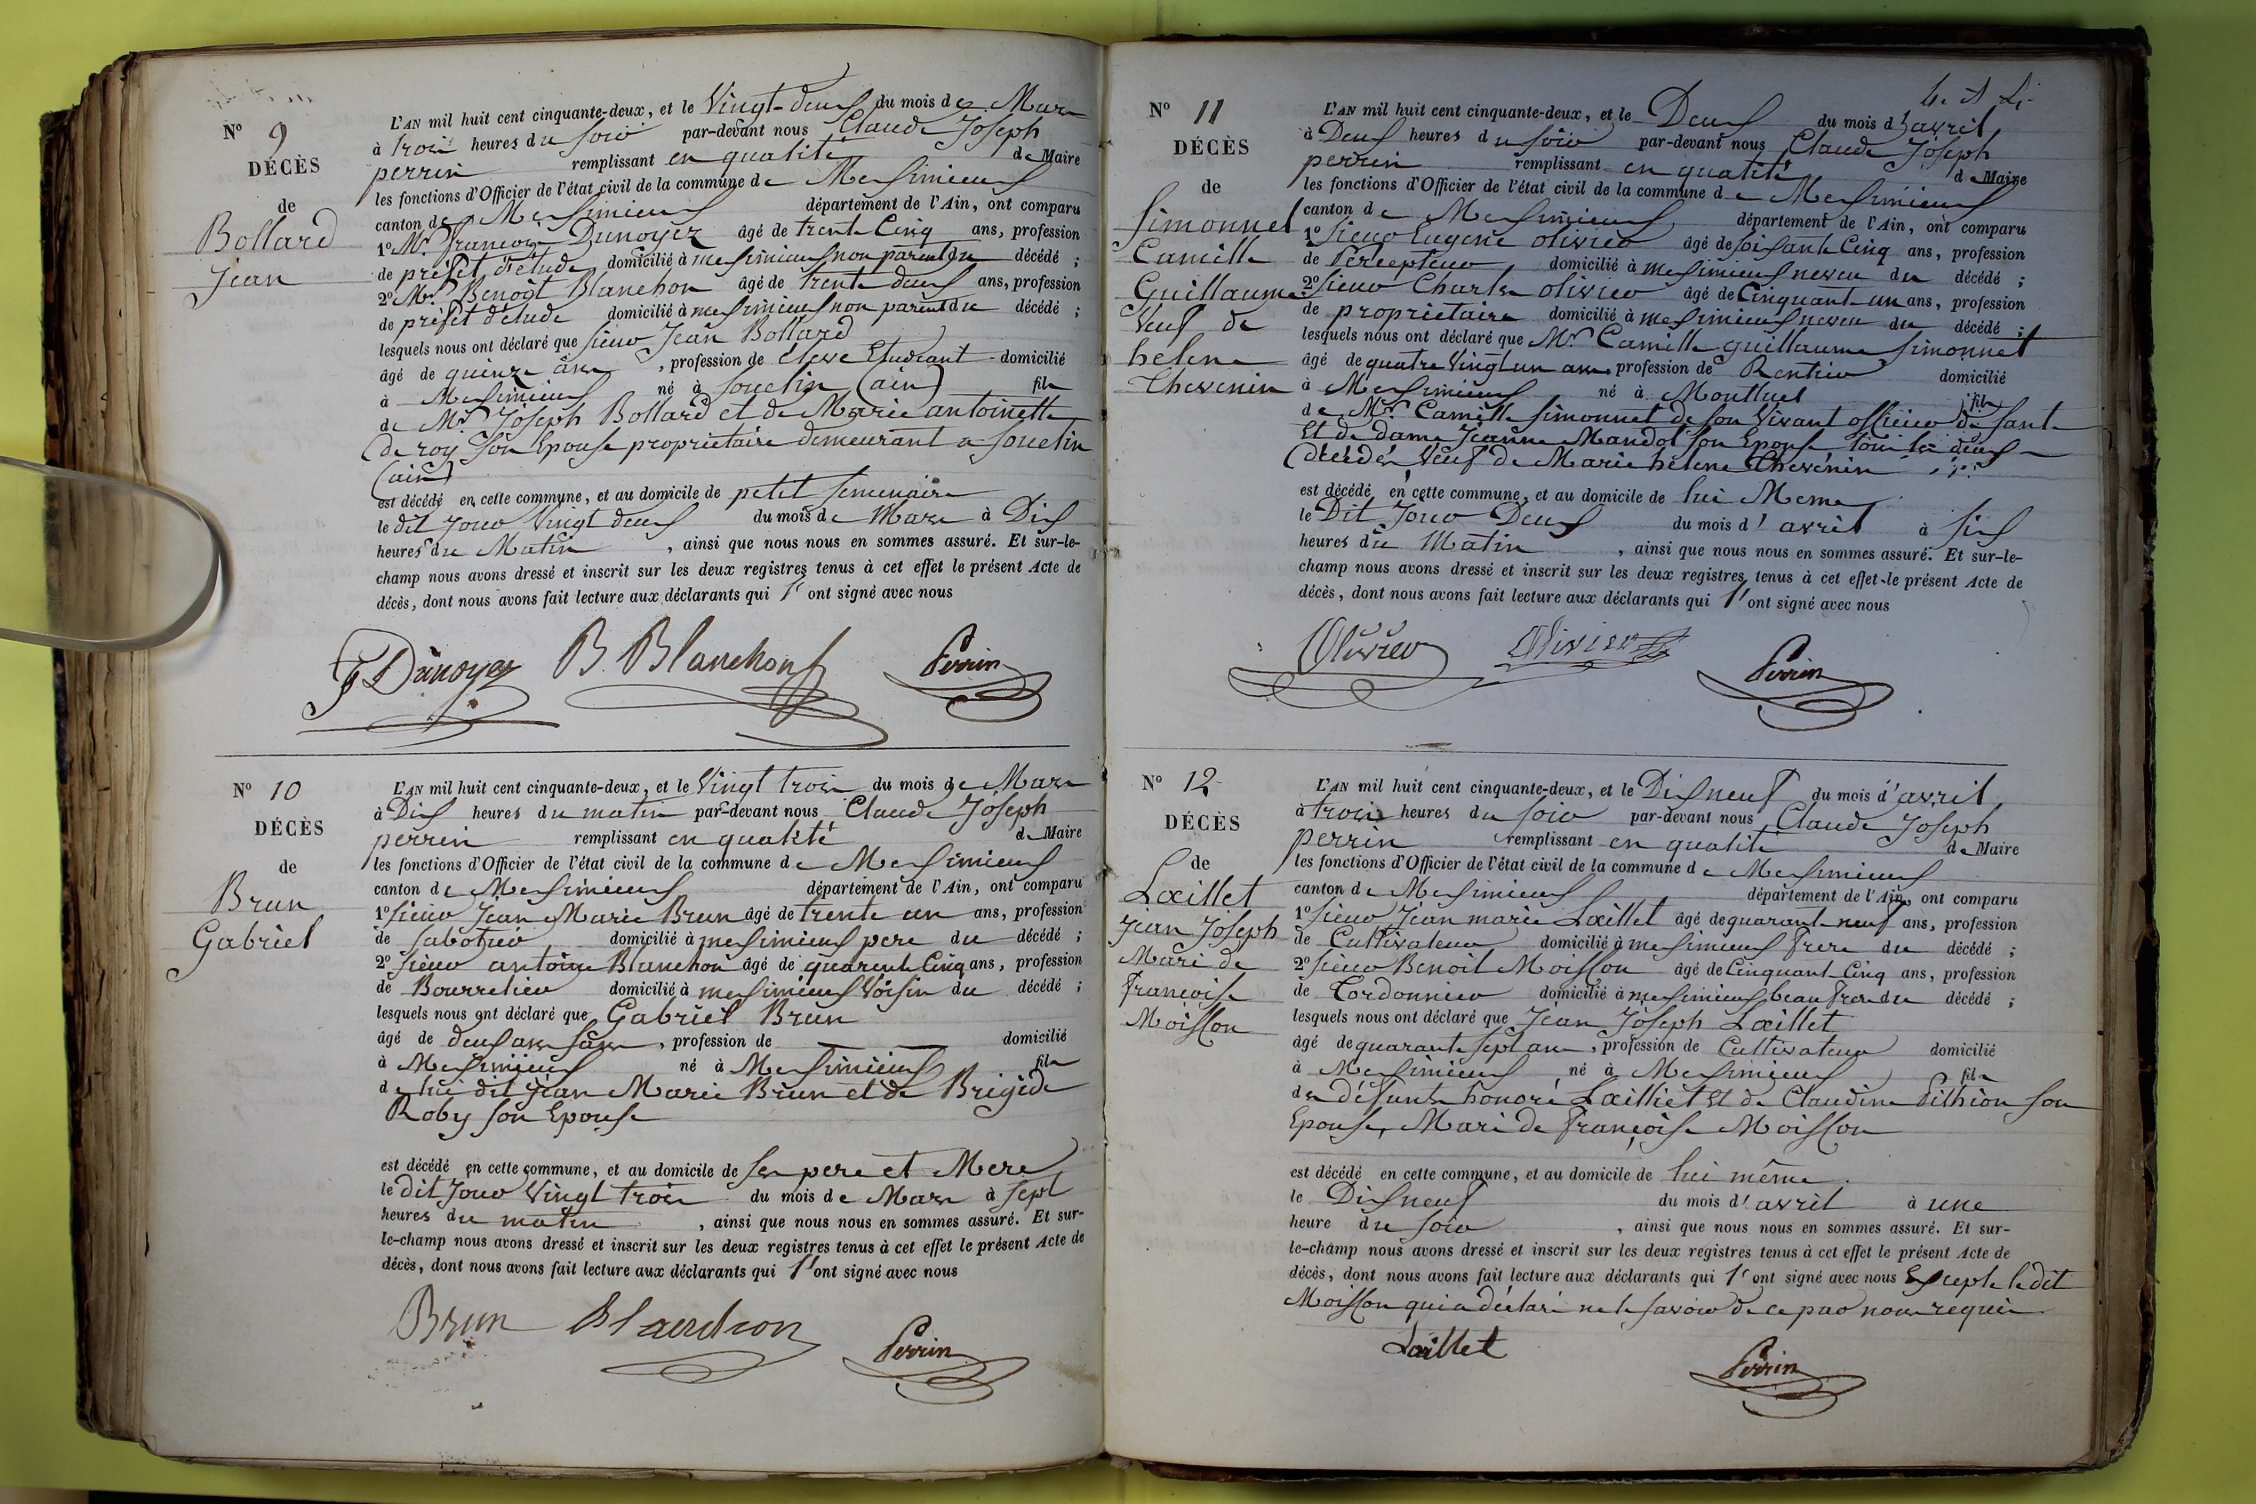 Nº 9
DÉCÈS
de
Bollard
Jean
L'AN mil huit cent cinquante-deux, et le Vingt-deux du mois de Mars
à trois heures du soir par-devant nous Claude Joseph
perrin remplissant en qualité de Maire
les fonctions d'Officier de l'état civil de la commune de Meximieux
canton de Meximieux département de l'Ain, ont comparu
1º Mr. françois Dunoyer âgé de trente Cinq ans, profession
de préfet d'étude domicilié à meximieux non parent du décédé ;
2º Mr. Benoît Blanchon âgé de trente deux ans, profession
de préfet d'étude domicilié à meximieux non parent du décédé ;
lesquels nous ont déclaré que sieur Jean Bollard
âgé de quinze ans, profession de Eleve Etudiant domicilié
à Meximieux né à souclin (ain) fils
de Mr. Joseph Bollard et de Marie antoinette
de roy son Epouse proprietaire demeurant a souclin
(ain)
est décédé en cette commune, et au domicile de petit semenaire
le dit Jour Vingt deux du mois de Mars à Dix
heures du Matin, ainsi que nous nous en sommes assuré. Et sur-le-
champ nous avons dressé et inscrit sur les deux registres tenus à cet effet le présent Acte de
décès, dont nous avons fait lecture aux déclarants qui l' ont signé avec nous
Dunoyer B. Blanchon Perrin
Nº 10
DÉCÈS
de
Brun
Gabriel
L'AN mil huit cent cinquante-deux, et le Vingt trois du mois de Mars
à Dix heures du matin par-devant nous Claude Joseph
perrin remplissant en qualité de Maire
les fonctions d'Officier de l'état civil de la commune de Meximieux
canton de Meximieux département de l'Ain, ont comparu
1º sieur Jean Marie Brun âgé de trente un ans, profession
de sabotier domicilié à meximieux pere du décédé ;
2º sieur antoine Blanchon âgé de quarente Cinq ans, profession
de Bourrelier domicilié à meximieux Voisin du décédé ;
lesquels nous ont déclaré que Gabriel Brun
âgé de deux ans, profession de domicilié
à Meximieux né à Meximieux fils
de lui dit Jean Marie Brun et de Brigide
Roby son Epouse
est décédé en cette commune, et au domicile de ses pere et Mere
le dit Jour Vingt trois du mois de Mars à sept
heures du matin, ainsi que nous nous en sommes assuré. Et sur-
le-champ nous avons dressé et inscrit sur les deux registres tenus à cet effet le présent Acte de
décès, dont nous avons fait lecture aux déclarants qui l' ont signé avec nous
Brun Blanchon Perrin
Nº 11
DÉCÈS
de
simonnet
Camille
Guillaume
Veuf de
helene
Thevenin
L'AN mil huit cent cinquante-deux, et le Deux du mois d'avril
à Deux heures du soir par-devant nous Claude Joseph
perrin remplissant en qualité de Maire
les fonctions d'Officier de l'état civil de la commune de Meximieux
canton de Meximieux département de l'Ain, ont comparu
1º sieur Eugene olivier âgé de soisante Cinq ans, profession
de Percepteur domicilié à meximieux neveu du décédé ;
2º sieur Charles olivier âgé de Cinquant un ans, profession
de proprietaire domicilié à meximieux neveu du décédé ;
lesquels nous ont déclaré que Mr. Camille guillaume simonnet
âgé de quatre Vingt un ans profession de Rentier domicilié
à Meximieux né à Montluel fils
de Mr. Camille simonnet de son Vivant officier de sante
Et de dame Jeanne Mandot son Epouse tous les deux
décédés Veuf de Marie helene Thevenin
est décédé en cette commune, et au domicile de lui Meme
le Dit Jour Deux du mois d'avril à six
heures du Matin, ainsi que nous nous en sommes assuré. Et sur-le-
champ nous avons dressé et inscrit sur les deux registres tenus à cet effet le présent Acte de
décès, dont nous avons fait lecture aux déclarants qui l' ont signé avec nous
Olivier Olivier Perrin
Nº 12
DÉCÈS
de
Laillet
Jean Joseph
Mari de
françoise
Moisson
L'AN mil huit cent cinquante-deux, et le Dix neuf du mois d'avril
à trois heures du soir par-devant nous Claude Joseph
perrin remplissant en qualité de Maire
les fonctions d'Officier de l'état civil de la commune de Meximieux
canton de Meximieux département de l'Ain, ont comparu
1º sieur Jean marie Laillet âgé de quarant neuf ans, profession
de Cultivateur domicilié à meximieux frere du décédé ;
2º sieur Benoit Moisson âgé de Cinquant Cinq ans, profession
de Cordonnier domicilié à meximieux beau frere du décédé ;
lesquels nous ont déclaré que Jean Joseph Laillet
âgé de quarante sept ans, profession de Cultivateur domicilié
à Meximieux né à Meximieux fils
de défunts honoré Lailliet Et de Claudine Pithion son
Epouse, Mari de françoise Moisson
est décédé en cette commune, et au domicile de lui même
le Dix neuf du mois d'avril à une
heure du soir, ainsi que nous nous en sommes assuré. Et sur-
le-champ nous avons dressé et inscrit sur les deux registres tenus à cet effet le présent Acte de
décès, dont nous avons fait lecture aux déclarants qui l' ont signé avec nous Excepte le dit
Moisson qui a déclaré ne le savoir de ce par nous requis
Laillet Perrin